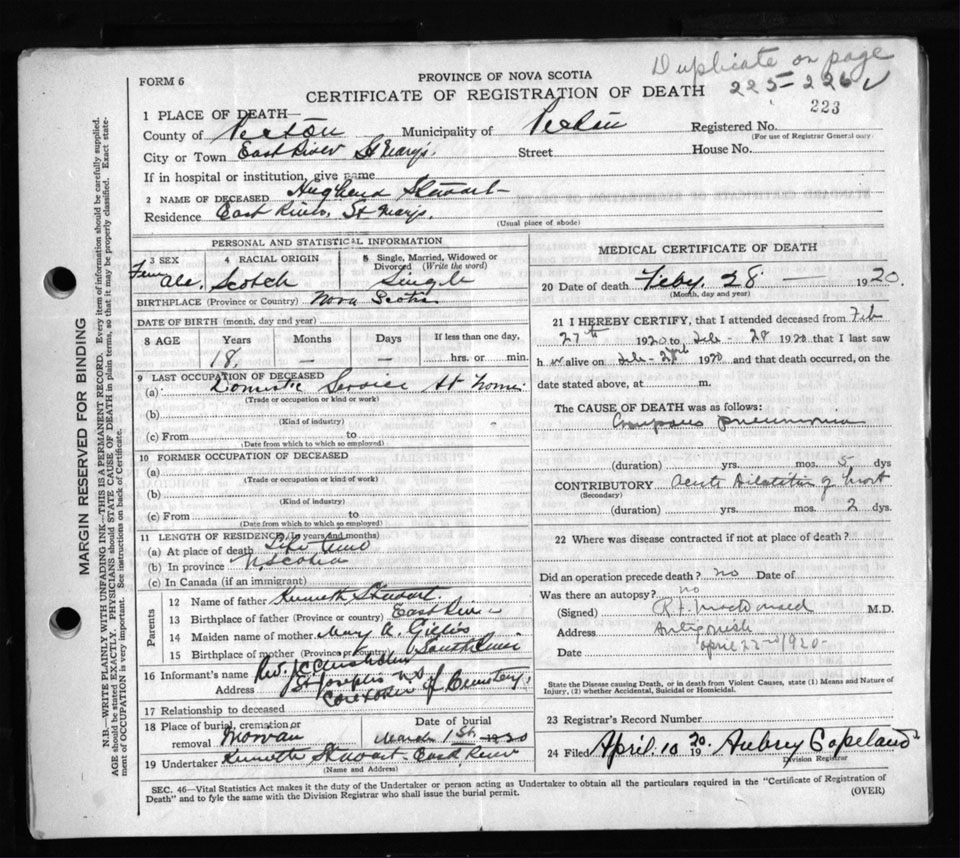 Duplicate on page
225-226
223
FORM 6
PROVINCE OF NOVA SCOTIA
CERTIFICATE OF REGISTRATION OF DEATH
1 PLACE OF DEATH—
County of Pictou Municipality of Pictou Registered No.
(For use of Registrar General only)
City or Town East River St Mary's Street House No.
If in hospital or institution, give name
2 NAME OF DECEASED Hughena Stewart
Residence East River, St Marys.
(Usual place of abode)
PERSONAL AND STATISTICAL INFORMATION
3 SEX Female 4 RACIAL ORIGIN Scotch 5 Single, Married, Widowed or Divorced (Write the word) Single
BIRTHPLACE (Province or Country) Nova Scotia
DATE OF BIRTH (month, day and year)
8 AGE Years 18 Months — Days — If less than one day, hrs. or min.
9 LAST OCCUPATION OF DECEASED
(a) Domestic Service At Home
(Trade or occupation or kind or work)
(b)
(Kind of industry)
(c) From to
(Date from which to which so employed)
10 FORMER OCCUPATION OF DECEASED
(a)
(Trade or occupation or kind of work)
(b)
(Kind of industry)
(c) From to
(Date from which to which so employed)
11 LENGTH OF RESIDENCE (In years and months)
(a) At place of death Life time
(b) In province N. Scotia
(c) In Canada (if an immigrant)
Parents
12 Name of father Kenneth Stewart.
13 Birthplace of father (Province or country) East River
14 Maiden name of mother Mary A. Gillis
15 Birthplace of mother (Province or country) South River
16 Informant's name Rev.
Address St Josephs N S
Caretaker of Cemetery
17 Relationship to deceased
18 Place of burial, cremation or removal Morvan Date of burial March 1st 1920
19 Undertaker Kenneth Stewart East River
(Name and Address)
MEDICAL CERTIFICATE OF DEATH
20 Date of death Feby. 28 — 1920.
(Month, day and year)
21 I HEREBY CERTIFY, that I attended deceased from Feb
27th 1920 to Feb - 28 1920 that I last saw
h alive on Feb - 1920 and that death occurred, on the
date stated above, at m.
The CAUSE OF DEATH was as follows:
pneumonia
(duration) yrs. mos. 5 dys
CONTRIBUTORY Acute Dilatation of heart
(Secondary)
(duration) yrs. mos. 2 dys.
22 Where was disease contracted if not at place of death?
Did an operation precede death? no Date of
Was there an autopsy? no
(Signed) R. F. MacDonald M.D.
Address Antigonish
Date April 22nd 1920-
State the Disease causing Death, or in death from Violent Causes, state (1) Means and Nature of
Injury, (2) whether Accidental, Suicidal or Homicidal.
23 Registrar's Record Number
24 Filed April. 10 1920 Aubrey Copeland
Division Registrar
SEC. 46—Vital Statistics Act makes it the duty of the Undertaker or person acting as Undertaker to obtain all the particulars required in the "Certificate of Registration of
Death" and to fyle the same with the Division Registrar who shall issue the burial permit.
(OVER)
MARGIN RESERVED FOR BINDING
N.B.—WRITE PLAINLY WITH UNFADING INK—THIS IS A PERMANENT RECORD. Every item of information should be carefully supplied.
AGE should be stated EXACTLY. PHYSICIANS should STATE CAUSE OF DEATH in plain terms, so that it may be properly classified. Exact statement
of OCCUPATION is very important. See instructions on back of Certificate.